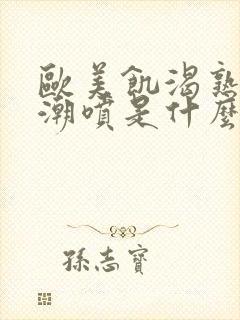 歐美飢渴熟
潮噴是什麼
孫志寶